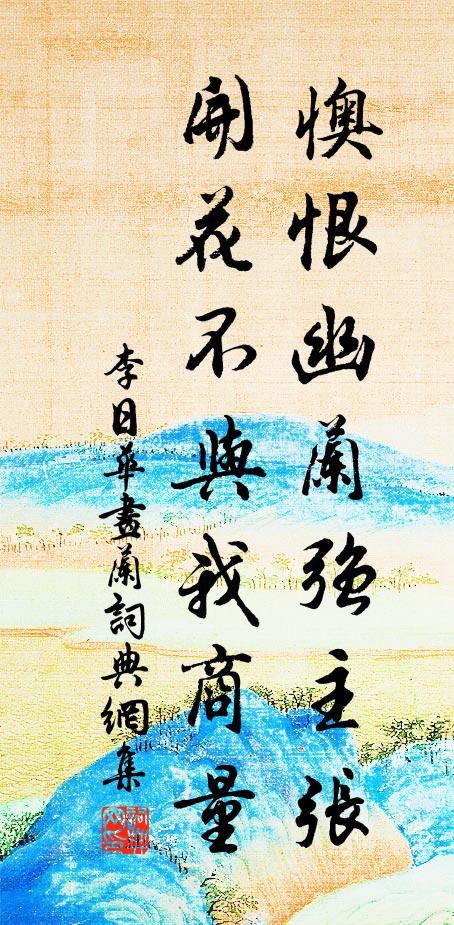 懊恨幽蘭強主張
開花不與我商量
李日華畫蘭詞典網集